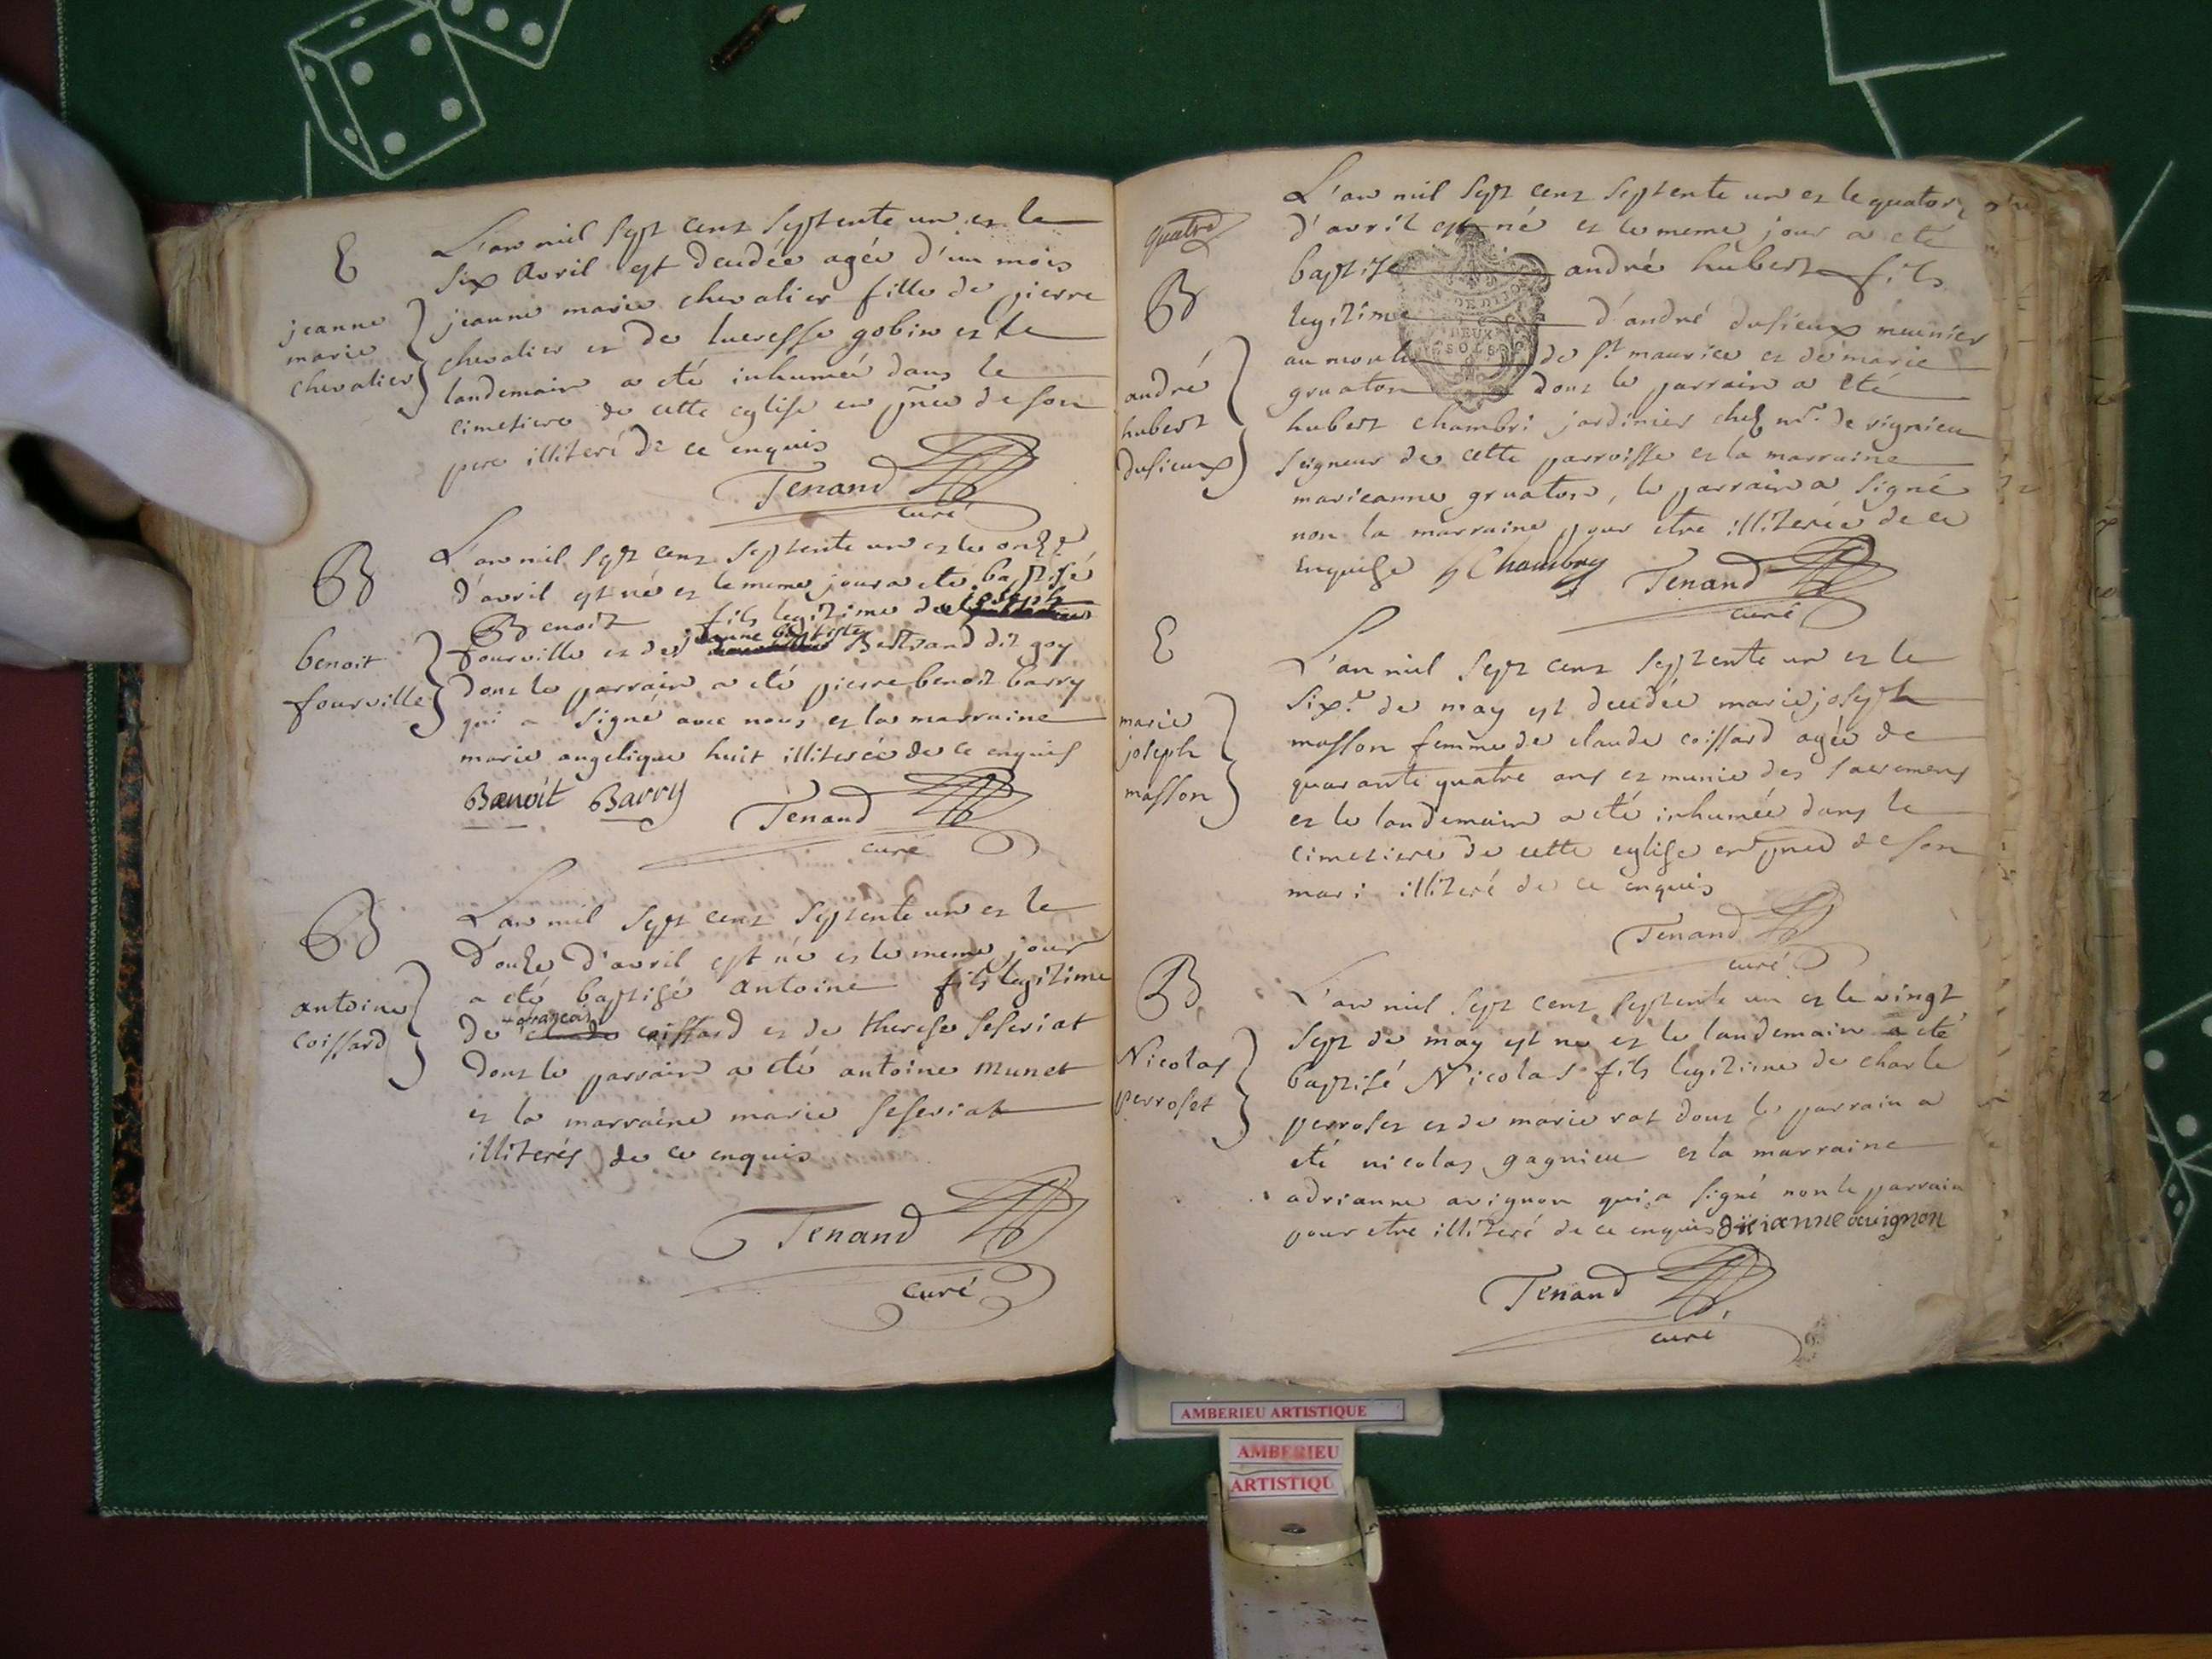 E
jeanne
marie
chevalier
L'an mil sept cent septente un et le
six avril est decedée agée d'un mois
jeanne marie chevalier fille de pierre
chevalier et de lucresse gobin et le
landemain a eté inhumée dans le
cimetiere de cette eglise en pñce de son
pere illiteré de ce enquis
Tenand
curé
B
benoit
fourville
L'an mil sept cent septente un et le onze
d'avril est né et le meme jour a eté baptisé
Benoit fils legitime de joseph
fourville et de jeanne baptiste Bertrand dit goy
dont le parrain a eté pierre benoit barry
qui a signé avec nous et la marraine
marie angelique huit illiterée de ce enquis
Benoit Barry Tenand
curé
B
antoine
coissard
L'an mil sept cent septente un et le
douze d'avril est né et le meme jour
a eté baptisé antoine fils legitime
de françois coissard et de therese seseriat
dont le parrain a eté antoine munet
et la marraine marie seseriat
illiterés de ce enquis
Tenand
curé
quatre
B
andré
hubert
dusieux
L'an mil sept cent septente un et le quatorze
d'avril est né et le meme jour a eté
baptisé andré hubert fils
legitime d'andré dusieux meunier
au moulin de st maurice et de marie
gruaton dont le parrain a eté
hubert chambri jardinier chez mr. de rignieu
seigneur de cette parroisse et la marraine
marieanne gruaton, le parrain a signé
non la marraine pour etre illiterée de ce
enquise h Chambry Tenand
curé
E
marie
joseph
masson
L'an mil sept cent septente un et le
sixe de may est decedée marie joseph
masson femme de claude coissard agée de
quarante quatre ans et munie des sacremens
et le landemain a eté inhumée dans le
cimetiere de cette eglise en pñce de son
mari illiteré de ce enquis
Tenand
curé
B
Nicolas
perroset
L'an mil sept cent septente un et le vingt
sept de may est né et le landemain a eté
baptisé Nicolas fils legitime de charle
perroset et de marie rat dont le parrain a
eté nicolas gagnieu et la marraine
adrianne avignon qui a signé non le parrain
pour etre illiteré de ce enquis driianne avignon
Tenand
curé
AMBERIEU ARTISTIQUE
AMBERIEU
ARTISTIQU